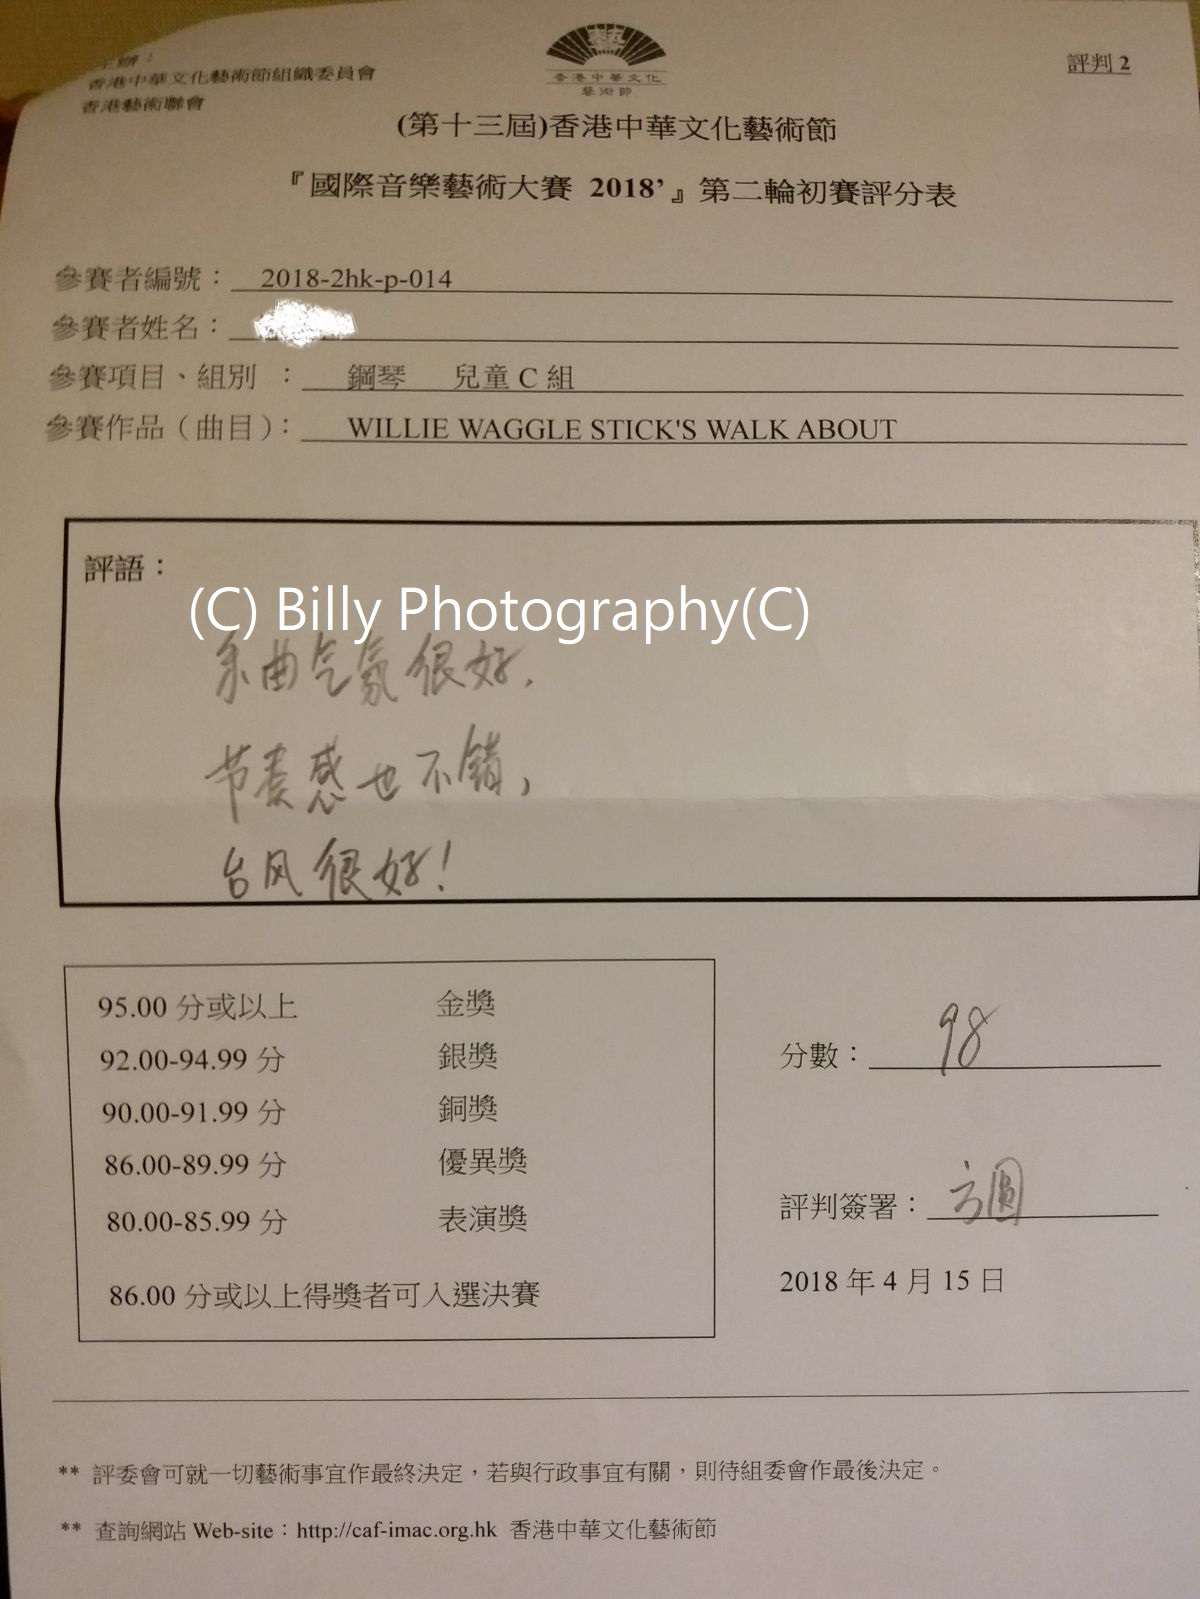 香港中華文化藝術節組織委員會
香港藝術聯會
香港中華文化
藝術節
評判 2
(第十三屆)香港中華文化藝術節
『國際音樂藝術大賽 2018’』第二輪初賽評分表
參賽者編號： 2018-2hk-p-014
參賽者姓名：
參賽項目、組別 ： 鋼琴 兒童 C 組
參賽作品（曲目）： WILLIE WAGGLE STICK'S WALK ABOUT
評語：
(C) Billy Photography(C)
乐曲气氛很好，
节奏感也不错，
台风很好！
95.00 分或以上 金獎
92.00-94.99 分 銀獎
90.00-91.99 分 銅獎
86.00-89.99 分 優異獎
80.00-85.99 分 表演獎
86.00 分或以上得獎者可入選決賽
分數： 98
評判簽署： 方圓
2018 年 4 月 15 日
** 評委會可就一切藝術事宜作最終決定，若與行政事宜有關，則待組委會作最後決定。
** 查詢網站 Web-site：http://caf-imac.org.hk 香港中華文化藝術節